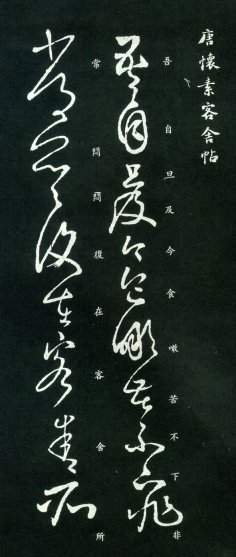 唐懷素客舍帖
吾自旦及今食噉苦不下非
常悶悶復在客舍所